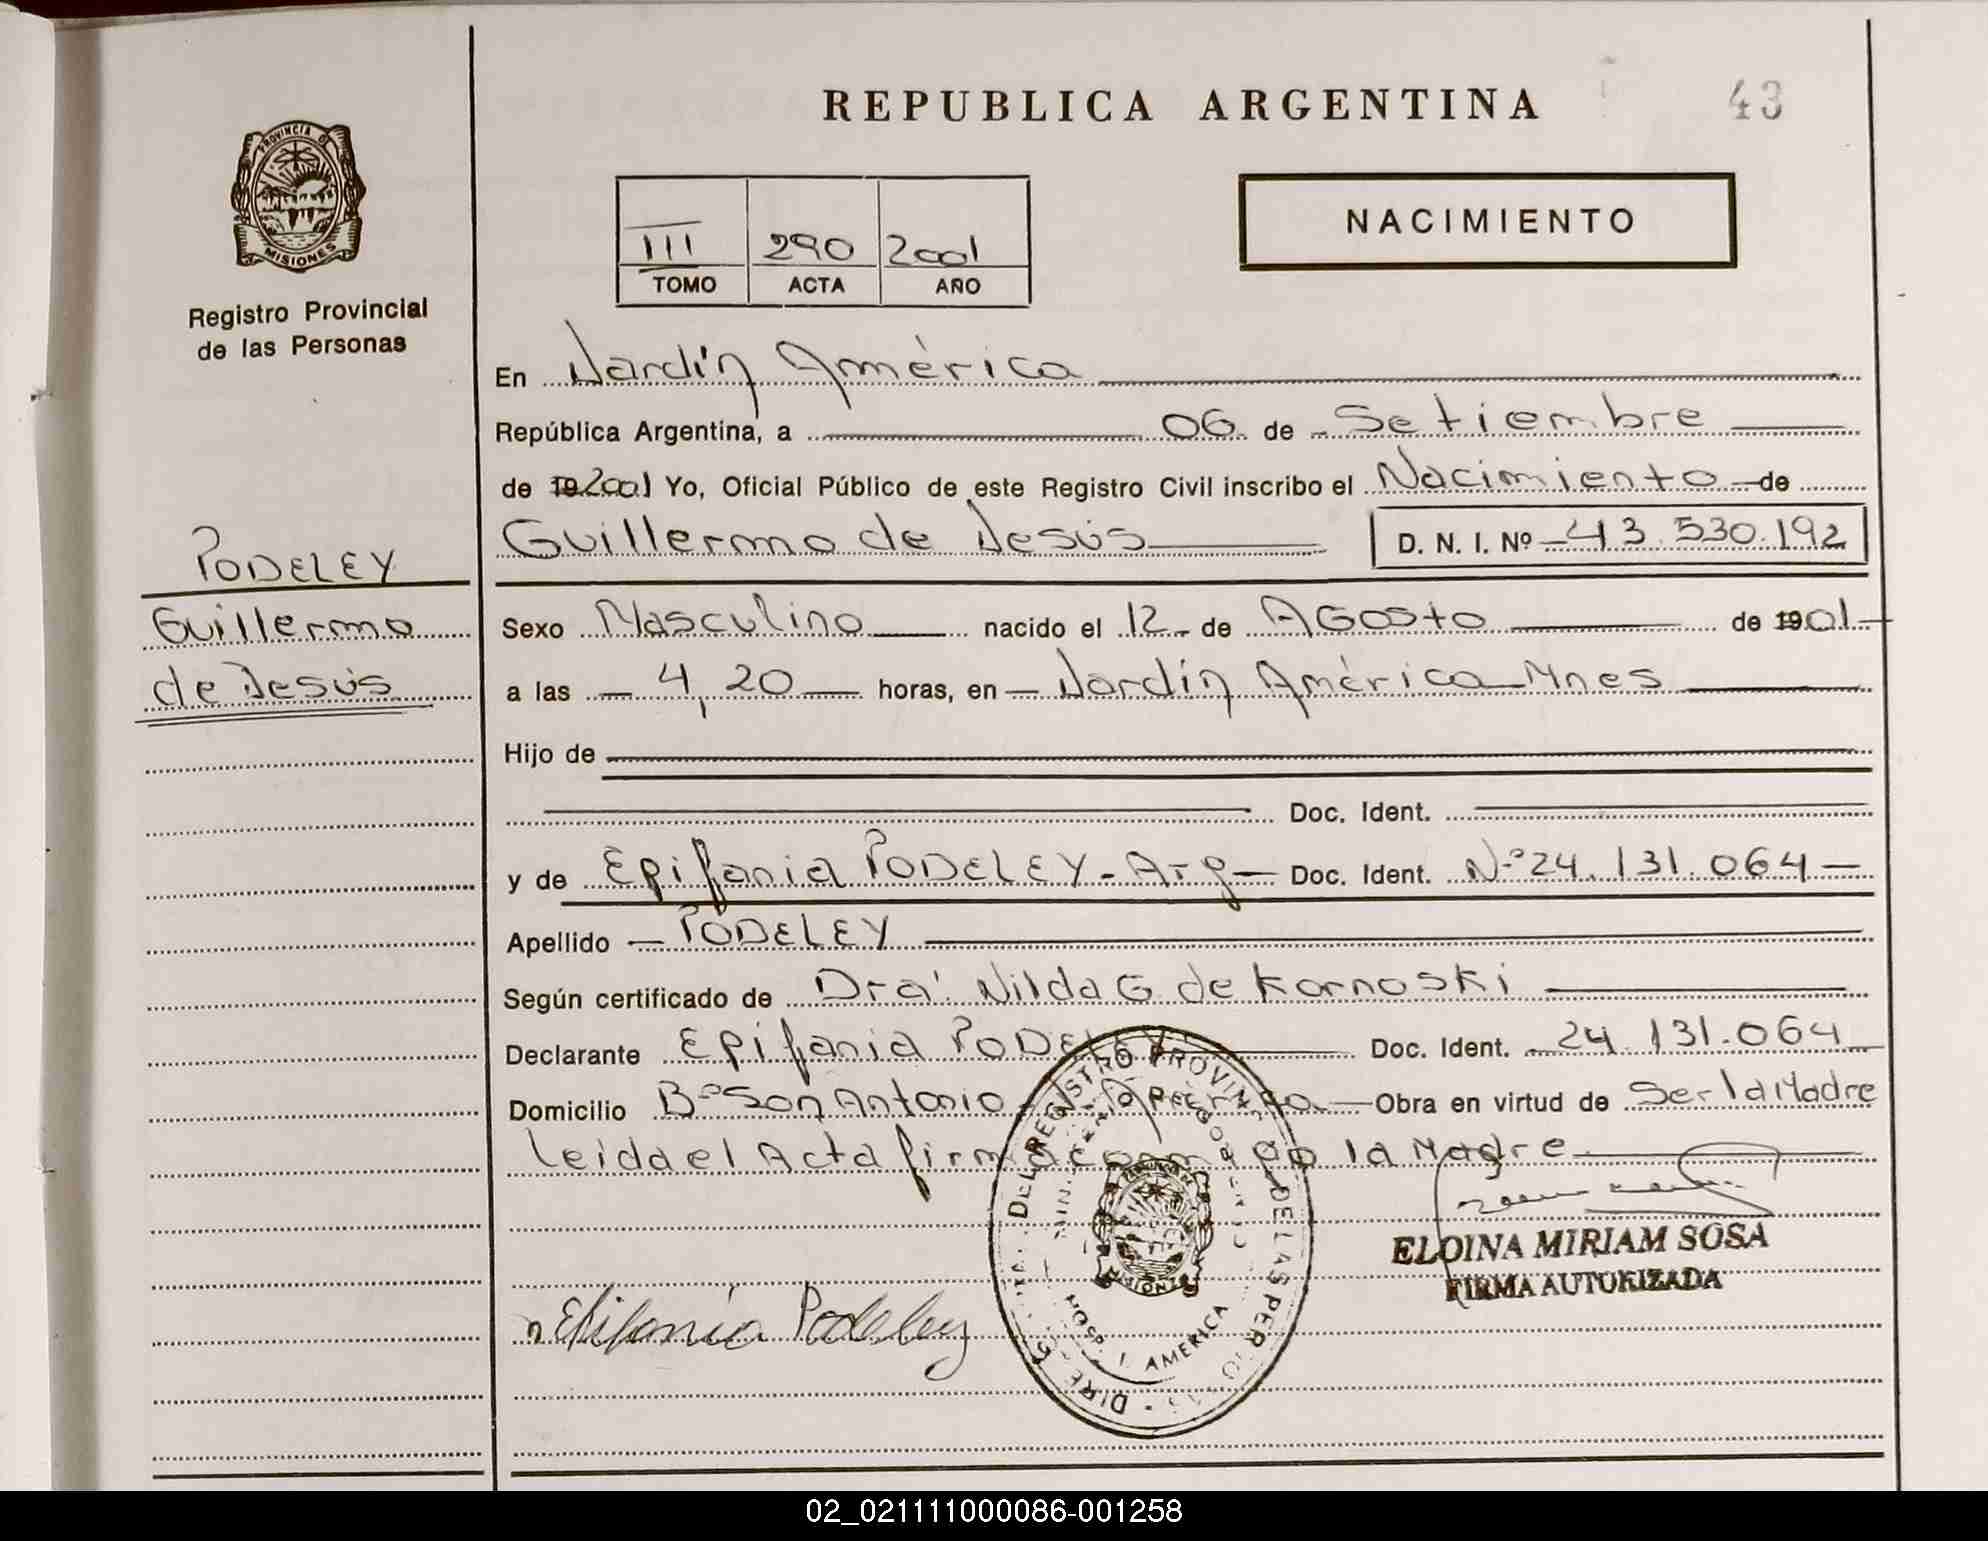 REPUBLICA ARGENTINA
43
PROVINCIA D
MISIONES
Registro Provincial
de las Personas
III 290 2001
TOMO ACTA AÑO
NACIMIENTO
En Jardín América
República Argentina, a 06 de Setiembre
de 19 2001 Yo, Oficial Público de este Registro Civil inscribo el Nacimiento de
Guillermo de Jesús D. N. I. Nº 43.530.192
PODELEY
Guillermo
de Jesús
Sexo Masculino nacido el 12 de AGosto de 19 01
a las 4,20 horas, en Jardín América Mnes
Hijo de
Doc. Ident.
y de Epifania PODELEY - Arg Doc. Ident. Nº 24.131.064
Apellido PODELEY
Según certificado de Dra. Nilda G de Kornoski
Declarante Epifania PODELEY Doc. Ident. 24.131.064
Domicilio Bº San Antonio Obra en virtud de Ser la Madre
leida el Acta firma la Madre
ELOINA MIRIAM SOSA
FIRMA AUTORIZADA
Epifania Podeley
DEL REGISTRO PROVIN DE LAS PER
AMERICA
02_021111000086-001258